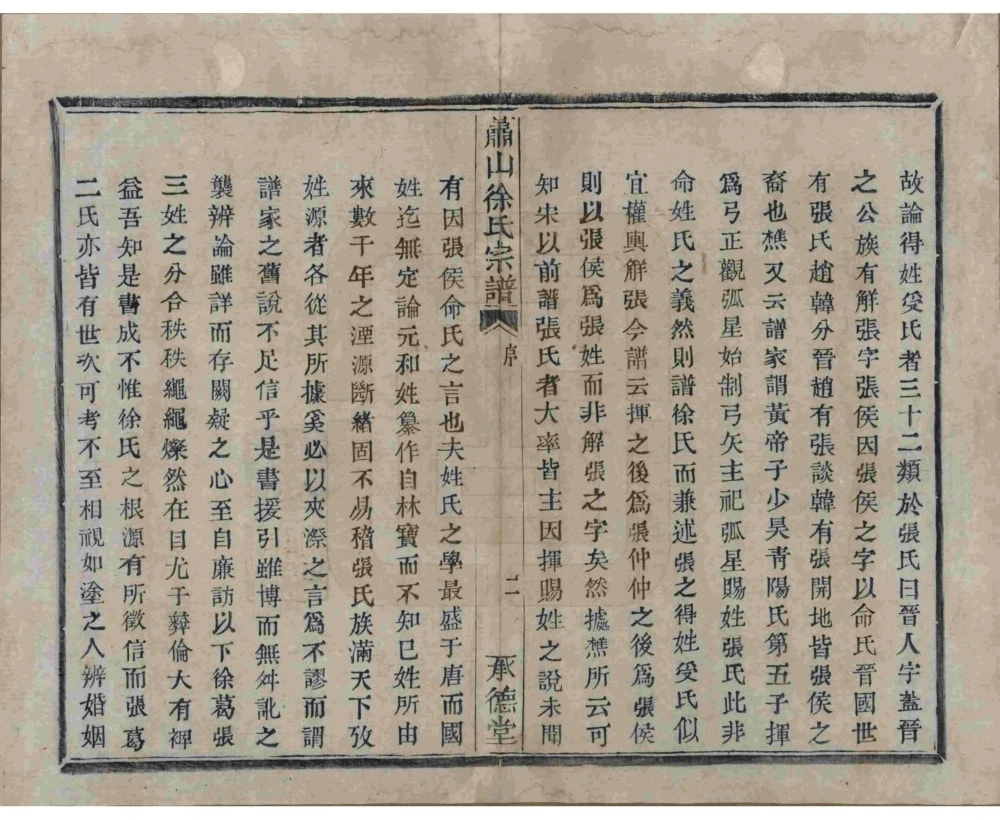 故論得姓受氏者三十二類於張氏曰晉人字蓋晉
之公族有解張字張侯因張侯之字以命氏晉國世
有張氏趙韓分晉趙有張談韓有張開地皆張侯之
裔也樵又云譜家謂黃帝子少昊靑陽氏第五子揮
爲弓正觀弧星始制弓矢主祀弧星賜姓張氏此非
命姓氏之義然則譜徐氏而兼述張之得姓受氏似
宜權輿解張今譜云揮之後爲張仲仲之後爲張侯
則以張侯爲張姓而非解張之字矣然據樵所云可
知宋以前譜張氏者大率皆主因揮賜姓之說未聞
蕭山徐氏宗譜 序 二 承德堂
有因張侯命氏之言也夫姓氏之學最盛于唐而國
姓迄無定論元和姓纂作自林寶而不知已姓所由
來數千年之湮源斷緖固不易稽張氏族滿天下攷
姓源者各從其所據奚必以夾漈之言爲不謬而謂
譜家之舊說不足信乎是書援引雖博而無舛訛之
襲辨論雖詳而存闕疑之心至自廉訪以下徐葛張
三姓之分合秩秩繩繩燦然在目尤于彞倫大有裨
益吾知是書成不惟徐氏之根源有所徵信而張葛
二氏亦皆有世次可考不至相視如塗之人辨婚姻